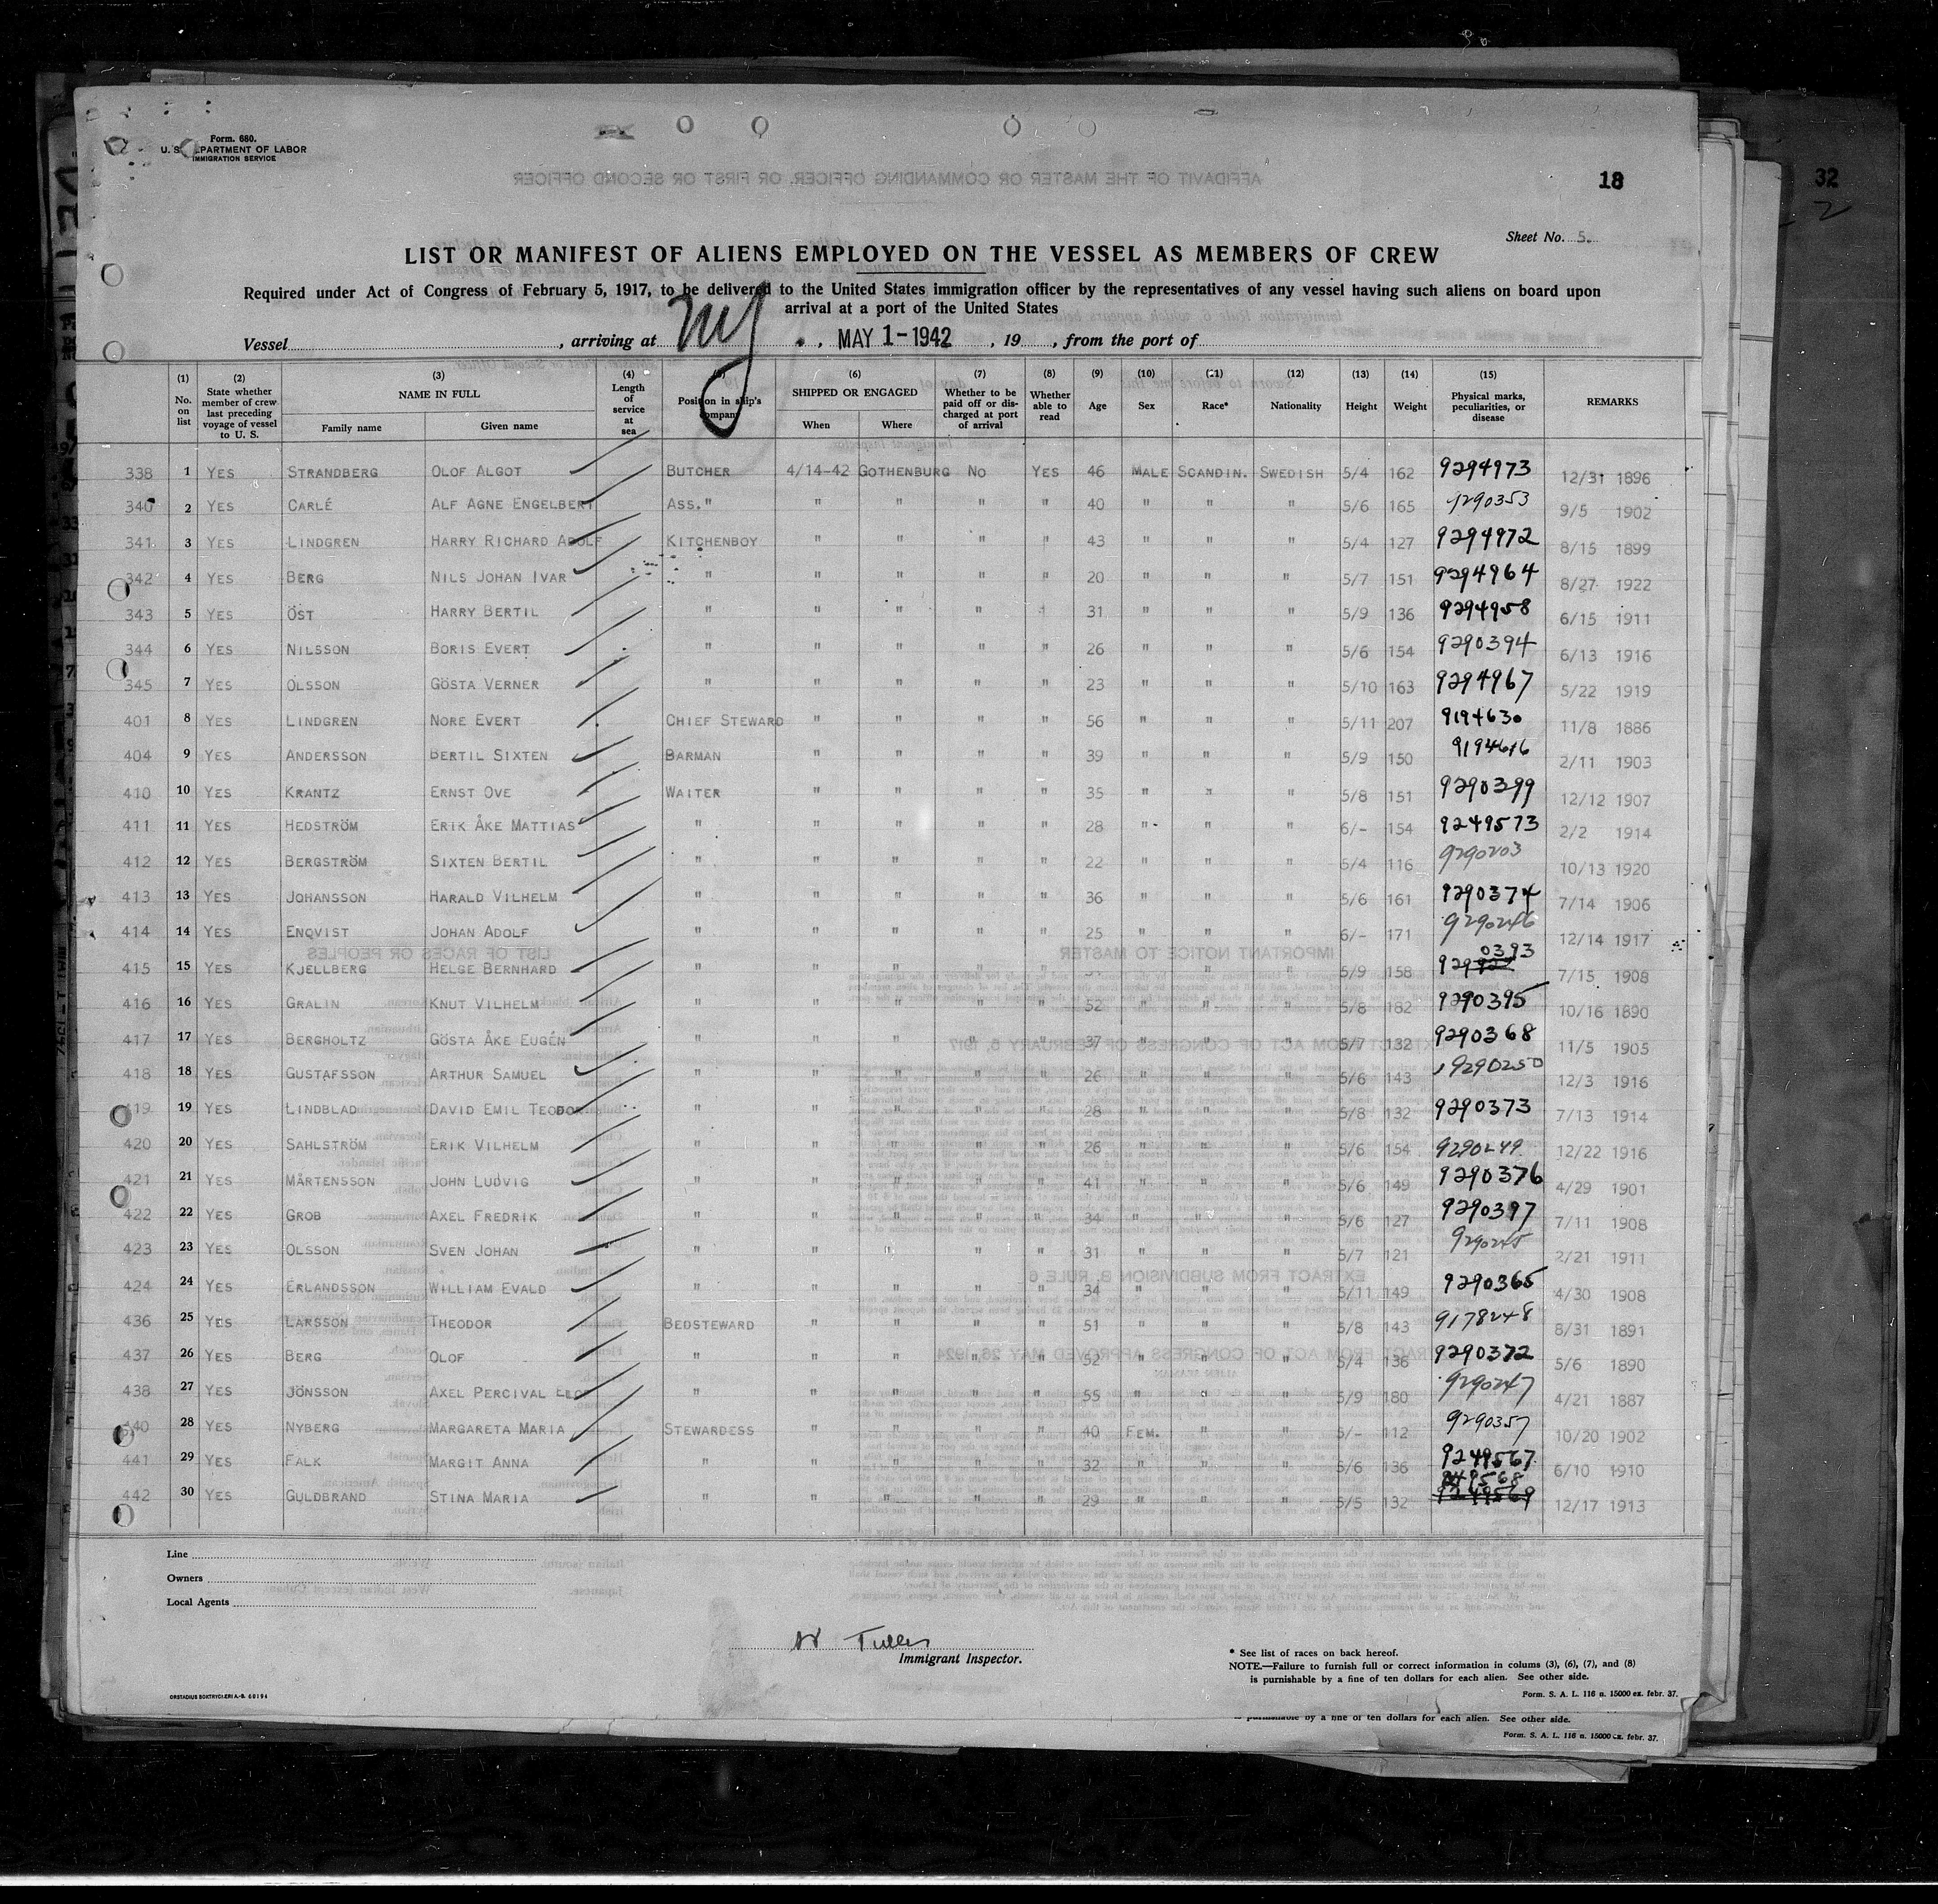 Form. 680.
U. S. DEPARTMENT OF LABOR
IMMIGRATION SERVICE
18
32
2
Sheet No. 5.
LIST OR MANIFEST OF ALIENS EMPLOYED ON THE VESSEL AS MEMBERS OF CREW
Required under Act of Congress of February 5, 1917, to be delivered to the United States immigration officer by the representatives of any vessel having such aliens on board upon
arrival at a port of the United States
Vessel , arriving at NY , MAY 1-1942 , 19 , from the port of
(1) No. on list (2) State whether member of crew last preceding voyage of vessel to U. S. (3) NAME IN FULL Family name Given name (4) Length of service at sea (5) Position in ship's company (6) SHIPPED OR ENGAGED When Where (7) Whether to be paid off or discharged at port of arrival (8) Whether able to read (9) Age (10) Sex (11) Race* (12) Nationality (13) Height (14) Weight (15) Physical marks, peculiarities, or disease REMARKS
338 1 YES STRANDBERG OLOF ALGOT BUTCHER 4/14-42 GOTHENBURG NO YES 46 MALE SCANDIN. SWEDISH 5/4 162 9294973 12/31 1896
340 2 YES CARLÉ ALF AGNE ENGELBERT ASS." " " " " 40 " " " 5/6 165 9290353 9/5 1902
341 3 YES LINDGREN HARRY RICHARD ADOLF KITCHENBOY " " " " 43 " " " 5/4 127 9294972 8/15 1899
342 4 YES BERG NILS JOHAN IVAR " " " " " 20 " " " 5/7 151 9294964 8/27 1922
343 5 YES ÖST HARRY BERTIL " " " " " 31 " " " 5/9 136 9294958 6/15 1911
344 6 YES NILSSON BORIS EVERT " " " " " 26 " " " 5/6 154 9290394 6/13 1916
345 7 YES OLSSON GÖSTA VERNER " " " " " 23 " " " 5/10 163 9294967 5/22 1919
401 8 YES LINDGREN NORE EVERT CHIEF STEWARD " " " " 56 " " " 5/11 207 9194630 11/8 1886
404 9 YES ANDERSSON BERTIL SIXTEN BARMAN " " " " 39 " " " 5/9 150 9194616 2/11 1903
410 10 YES KRANTZ ERNST OVE WAITER " " " " 35 " " " 5/8 151 9290399 12/12 1907
411 11 YES HEDSTRÖM ERIK ÅKE MATTIAS " " " " " 28 " " " 6/- 154 9249573 2/2 1914
412 12 YES BERGSTRÖM SIXTEN BERTIL " " " " " 22 " " " 5/4 116 9290203 10/13 1920
413 13 YES JOHANSSON HARALD VILHELM " " " " " 36 " " " 5/6 161 9290374 7/14 1906
414 14 YES ENQVIST JOHAN ADOLF " " " " " 25 " " " 6/- 171 9290246 12/14 1917
415 15 YES KJELLBERG HELGE BERNHARD " " " " " " " " 5/9 158 929 0393 7/15 1908
416 16 YES GRALIN KNUT VILHELM " " " " " 52 " " " 5/8 182 9290395 10/16 1890
417 17 YES BERGHOLTZ GÖSTA ÅKE EUGÉN " " " " " 37 " " " 5/7 132 9290368 11/5 1905
418 18 YES GUSTAFSSON ARTHUR SAMUEL " " " " " 26 " " " 5/6 143 9290250 12/3 1916
419 19 YES LINDBLAD DAVID EMIL TEODOR " " " " " 28 " " " 5/8 132 9290373 7/13 1914
420 20 YES SAHLSTRÖM ERIK VILHELM " " " " " 26 " " " 5/6 154 9290249 12/22 1916
421 21 YES MÅRTENSSON JOHN LUDVIG " " " " " 41 " " " 5/6 149 9290376 4/29 1901
422 22 YES GROB AXEL FREDRIK " " " " " 34 " " " 5/6 127 9290397 7/11 1908
423 23 YES OLSSON SVEN JOHAN " " " " " 31 " " " 5/7 121 9290245 2/21 1911
424 24 YES ERLANDSSON WILLIAM EVALD " " " " " 34 " " " 5/11 149 9290365 4/30 1908
436 25 YES LARSSON THEODOR BEDSTEWARD " " " " 51 " " " 5/8 143 9178248 8/31 1891
437 26 YES BERG OLOF " " " " " 52 " " " 5/4 136 9290372 5/6 1890
438 27 YES JÖNSSON AXEL PERCIVAL " " " " " 55 " " " 5/9 180 9290247 4/21 1887
440 28 YES NYBERG MARGARETA MARIA STEWARDESS " " " " 40 FEM. " " 5/- 112 9290357 10/20 1902
441 29 YES FALK MARGIT ANNA " " " " " 32 " " " 5/6 136 9249567 6/10 1910
442 30 YES GULDBRAND STINA MARIA " " " " " 29 " " " 5/5 132 9249569 12/17 1913
Line
Owners
Local Agents
Immigrant Inspector.
* See list of races on back hereof.
NOTE.—Failure to furnish full or correct information in colums (3), (6), (7), and (8)
is punishable by a fine of ten dollars for each alien. See other side.
ORSTADIUS BOKTRYCKERI A.-B. 60194
Form. S. A. L. 116 n. 15000 ex. febr. 37.
is punishable by a fine of ten dollars for each alien. See other side.
Form. S. A. L. 116 n. 15000 ex. febr. 37.